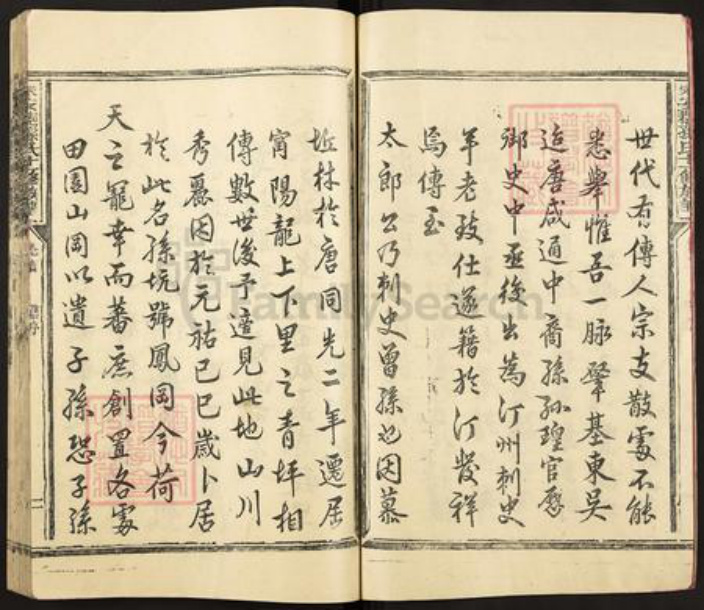 世代有傳人宗支散處不能
悉舉惟吾一脉肇基東吳
迨唐咸通中裔孫孫瑝官歷
御史中丞後出為汀州刺史
年老致仕遂籍於汀發祥
焉傳至
太郎公乃刺史曾孫也因慕
坵林於唐同光二年遷居
甯陽龍上下里之青坪相
傳數世後予適見此地山川
秀麗因於元祐己巳歲卜居
於此名孫坑號鳳岡今荷
天之寵幸而蕃庶創置各處
田園山岡以遺子孫恐子孫
FamilySearch